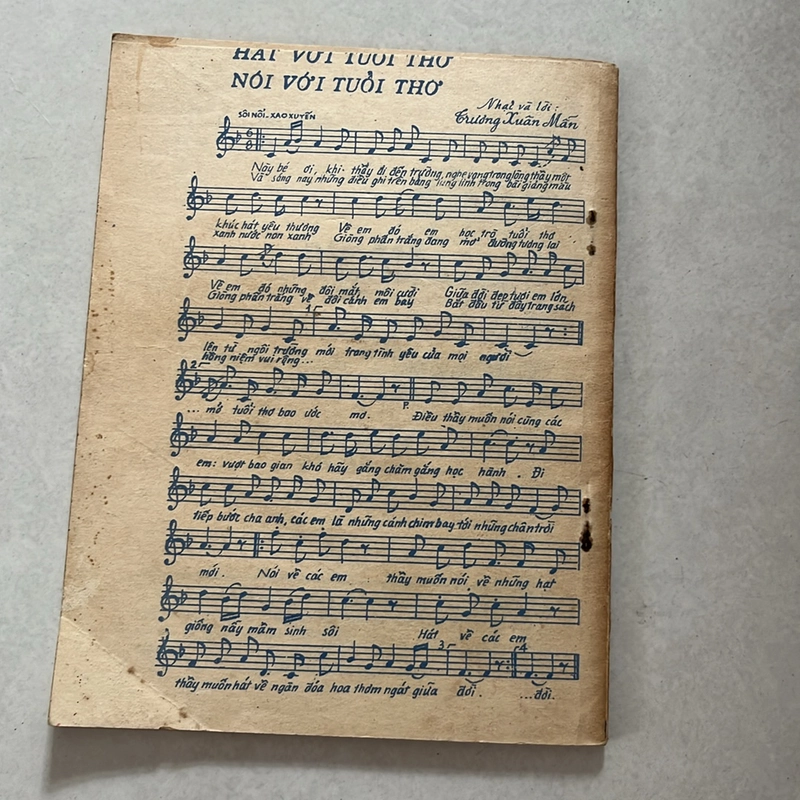 HÁT VỚI TUỔI THƠ
NÓI VỚI TUỔI THƠ
Nhạc và lời :
Trương Xuân Mẫn
SÔI NỔI - XAO XUYẾN
Này bé ơi, khi thầy đi đến trường, nghe vọng trong lòng thầy một
Và sáng nay những điều ghi trên bảng lung linh trong bài giảng màu
khúc hát yêu thương Về em đó em học trò tuổi thơ
xanh nước non xanh Giòng phấn trắng đang mở đường tương lai
Về em đó những đôi mắt, môi cười Giữa đời đẹp tươi em lớn
Giòng phấn trắng vẽ đôi cánh em bay Bắt đầu từ đây trang sách
1
lên từ ngôi trường mới trong tình yêu của mọi người
hồng niệm vui rộng...
2
... mở tuổi thơ bao ước mơ. Điều thầy muốn nói cùng các
P.
em: vượt bao gian khó hãy gắng chăm gắng học hành. Đi
tiếp bước cha anh, các em là những cánh chim bay tới những chân trời
mới. Nói về các em thầy muốn nói về những hạt
giống nẩy mầm sinh sôi Hát về các em
3 4
thầy muốn hát về ngàn đóa hoa thơm ngát giữa đời. ...đời.